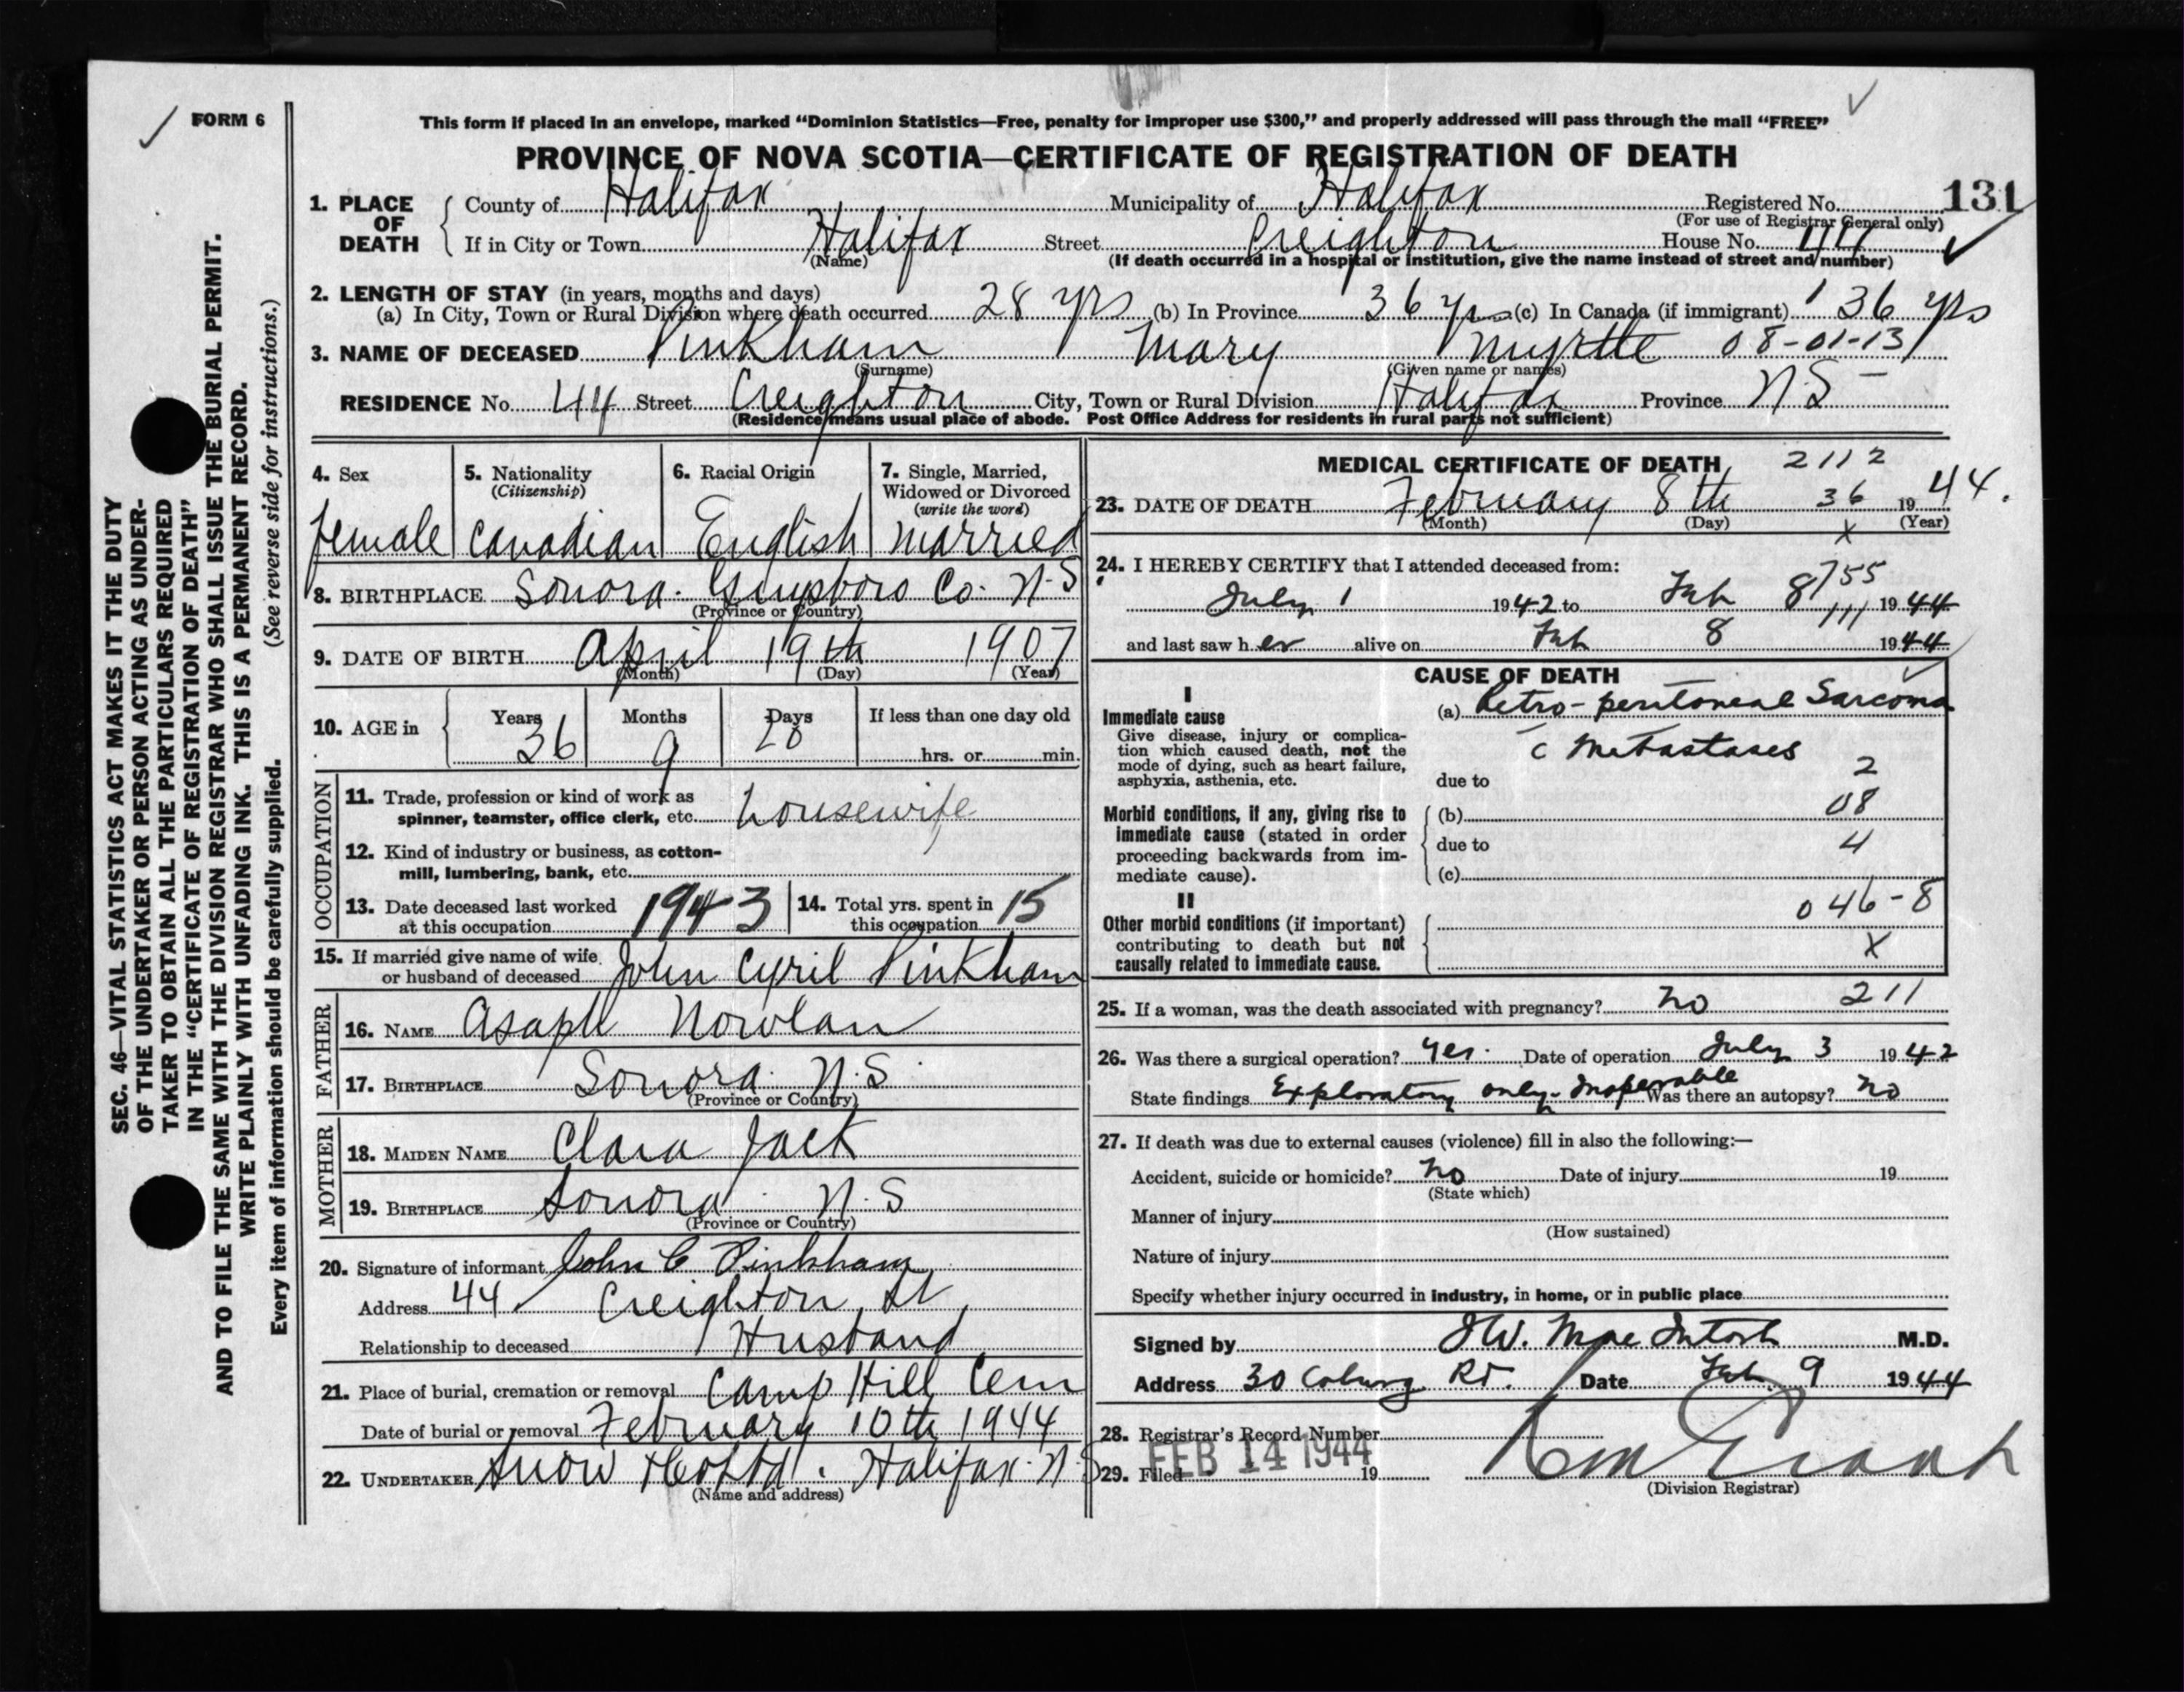 FORM 6
This form if placed in an envelope, marked “Dominion Statistics—Free, penalty for improper use $300,” and properly addressed will pass through the mail “FREE”
PROVINCE OF NOVA SCOTIA—CERTIFICATE OF REGISTRATION OF DEATH
SEC. 46—VITAL STATISTICS ACT MAKES IT THE DUTY
OF THE UNDERTAKER OR PERSON ACTING AS UNDER-
TAKER TO OBTAIN ALL THE PARTICULARS REQUIRED
IN THE “CERTIFICATE OF REGISTRATION OF DEATH”
AND TO FILE THE SAME WITH THE DIVISION REGISTRAR WHO SHALL ISSUE THE BURIAL PERMIT.
WRITE PLAINLY WITH UNFADING INK. THIS IS A PERMANENT RECORD.
Every item of information should be carefully supplied. (See reverse side for instructions.)
1. PLACE OF DEATH
County of Halifax Municipality of Halifax Registered No. 131
(For use of Registrar General only)
If in City or Town Halifax Street Creighton House No. 44
(Name) (If death occurred in a hospital or institution, give the name instead of street and number)
2. LENGTH OF STAY (in years, months and days)
(a) In City, Town or Rural Division where death occurred 28 yrs (b) In Province 36 yrs (c) In Canada (if immigrant) 36 yrs
3. NAME OF DECEASED Pinkham Mary Myrtle 08-01-13
(Surname) (Given name or names)
RESIDENCE No. 44 Street Creighton City, Town or Rural Division Halifax Province N.S
(Residence means usual place of abode. Post Office Address for residents in rural parts not sufficient)
4. Sex
female
5. Nationality
(Citizenship)
Canadian
6. Racial Origin
English
7. Single, Married,
Widowed or Divorced
(write the word)
married
8. BIRTHPLACE Sonora. Guysboro Co. N-S
(Province or Country)
9. DATE OF BIRTH April 19th 1907
(Month) (Day) (Year)
10. AGE in
Years Months Days If less than one day old
36 9 20 hrs. or min.
OCCUPATION
11. Trade, profession or kind of work as
spinner, teamster, office clerk, etc. housewife
12. Kind of industry or business, as cotton-
mill, lumbering, bank, etc.
13. Date deceased last worked
at this occupation 1943
14. Total yrs. spent in
this occupation 15
15. If married give name of wife
or husband of deceased John Cyril Pinkham
FATHER
16. NAME Asaph Nowlan
17. BIRTHPLACE Sonora. N.S
(Province or Country)
MOTHER
18. MAIDEN NAME Clara Jack
19. BIRTHPLACE Sonora N.S
(Province or Country)
20. Signature of informant John C Pinkham
Address 44 Creighton St
Relationship to deceased Husband
21. Place of burial, cremation or removal Camp Hill Cem
Date of burial or removal February 10th 1944
22. UNDERTAKER Snow & Co Ltd. Halifax. N.S
(Name and address)
MEDICAL CERTIFICATE OF DEATH 2112
23. DATE OF DEATH February 8th 36 1944.
(Month) (Day) x (Year)
24. I HEREBY CERTIFY that I attended deceased from:
755
July 1 1942 to Feb 8 111 1944
and last saw her alive on Feb 8 1944
CAUSE OF DEATH
I
Immediate cause
Give disease, injury or complica-
tion which caused death, not the
mode of dying, such as heart failure,
asphyxia, asthenia, etc.
(a) Retro-peritoneal Sarcoma
c Metastases
due to 2
Morbid conditions, if any, giving rise to
immediate cause (stated in order
proceeding backwards from im-
mediate cause).
(b) 08
due to 4
(c)
II
Other morbid conditions (if important)
contributing to death but not
causally related to immediate cause.
046-8
X
25. If a woman, was the death associated with pregnancy? No 211
26. Was there a surgical operation? Yes. Date of operation July 3 1942
State findings Exploratory only - Inoperable Was there an autopsy? No
27. If death was due to external causes (violence) fill in also the following:—
Accident, suicide or homicide? No Date of injury 19
(State which)
Manner of injury
(How sustained)
Nature of injury
Specify whether injury occurred in industry, in home, or in public place
Signed by J.W. MacIntosh M.D.
Address 30 Coburg Rd. Date Feb. 9 1944
28. Registrar's Record Number
29. Filed FEB 14 1944 19
(Division Registrar)